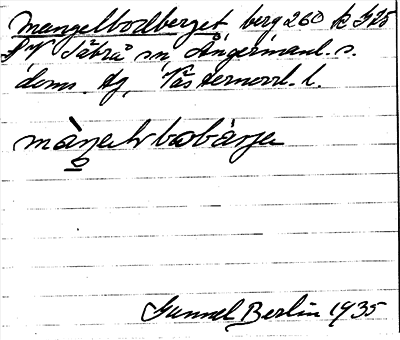 Mangelbodberget berg 260 k G25
SV Säbrå sn Ångermanl. s.
doms. Västernorrl. l.
Gunnel Berlin 1935